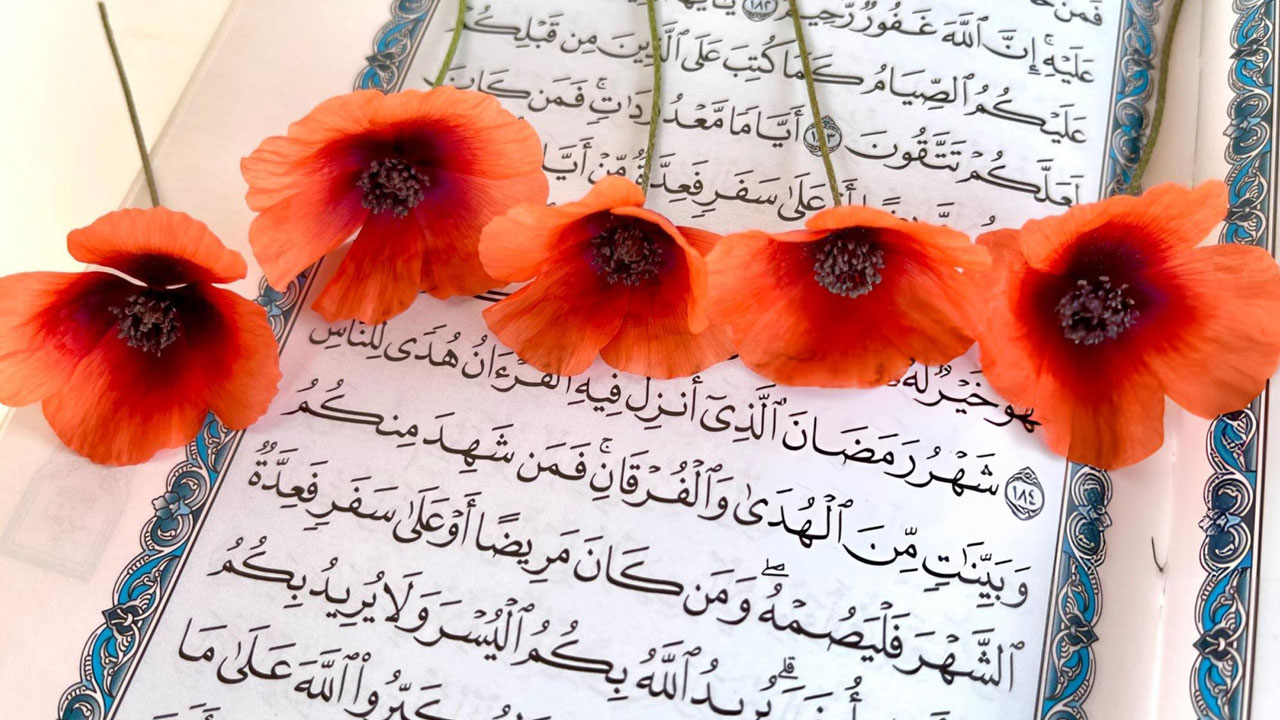 فَمَنْ
عَلَيْهِ ۚ إِنَّ ٱللَّهَ غَفُورٌ رَّحِيمٌ ١٨٢ يَٰٓأَيُّهَا
عَلَيْكُمُ ٱلصِّيَامُ كَمَا كُتِبَ عَلَى ٱلَّذِينَ مِن قَبْلِكُمْ
لَعَلَّكُمْ تَتَّقُونَ ١٨٣ أَيَّامًا مَّعْدُودَٰتٍ ۚ فَمَن كَانَ
أَوْ عَلَىٰ سَفَرٍ فَعِدَّةٌ مِّنْ أَيَّا
هُوَ خَيْرٌ لَّهُۥ
١٨٤ شَهْرُ رَمَضَانَ ٱلَّذِىٓ أُنزِلَ فِيهِ ٱلْقُرْءَانُ هُدًى لِّلنَّاسِ
وَبَيِّنَٰتٍ مِّنَ ٱلْهُدَىٰ وَٱلْفُرْقَانِ ۚ فَمَن شَهِدَ مِنكُمُ
ٱلشَّهْرَ فَلْيَصُمْهُ ۖ وَمَن كَانَ مَرِيضًا أَوْ عَلَىٰ سَفَرٍ فَعِدَّةٌ
يُرِيدُ ٱللَّهُ بِكُمُ ٱلْيُسْرَ وَلَا يُرِيدُ بِكُمُ
ٱللَّهَ عَلَىٰ مَا